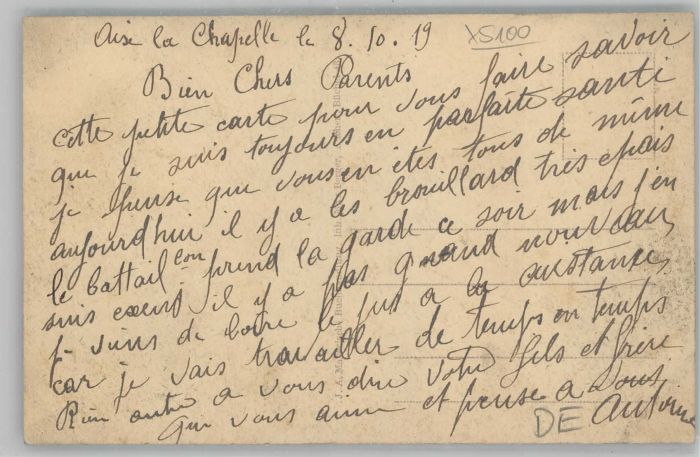 Aise la Chapelle le 8. 10. 19
X5100
Bien Chers Parents
cette petite carte pour vous faire savoir
que je suis toujours en parfaite santé
je pense que vous en êtes tous de même
aujourdhui il y a les brouillard très epais
le battaillon prend la garde ce soir mais j'en
suis exent il y a pas grand nouveau
je viens de boire le jus a la
car je vais travailler de temps en temps
Rien autre a vous dire votre fils et frère
qui vous aime et pense a vous
DE Antoine